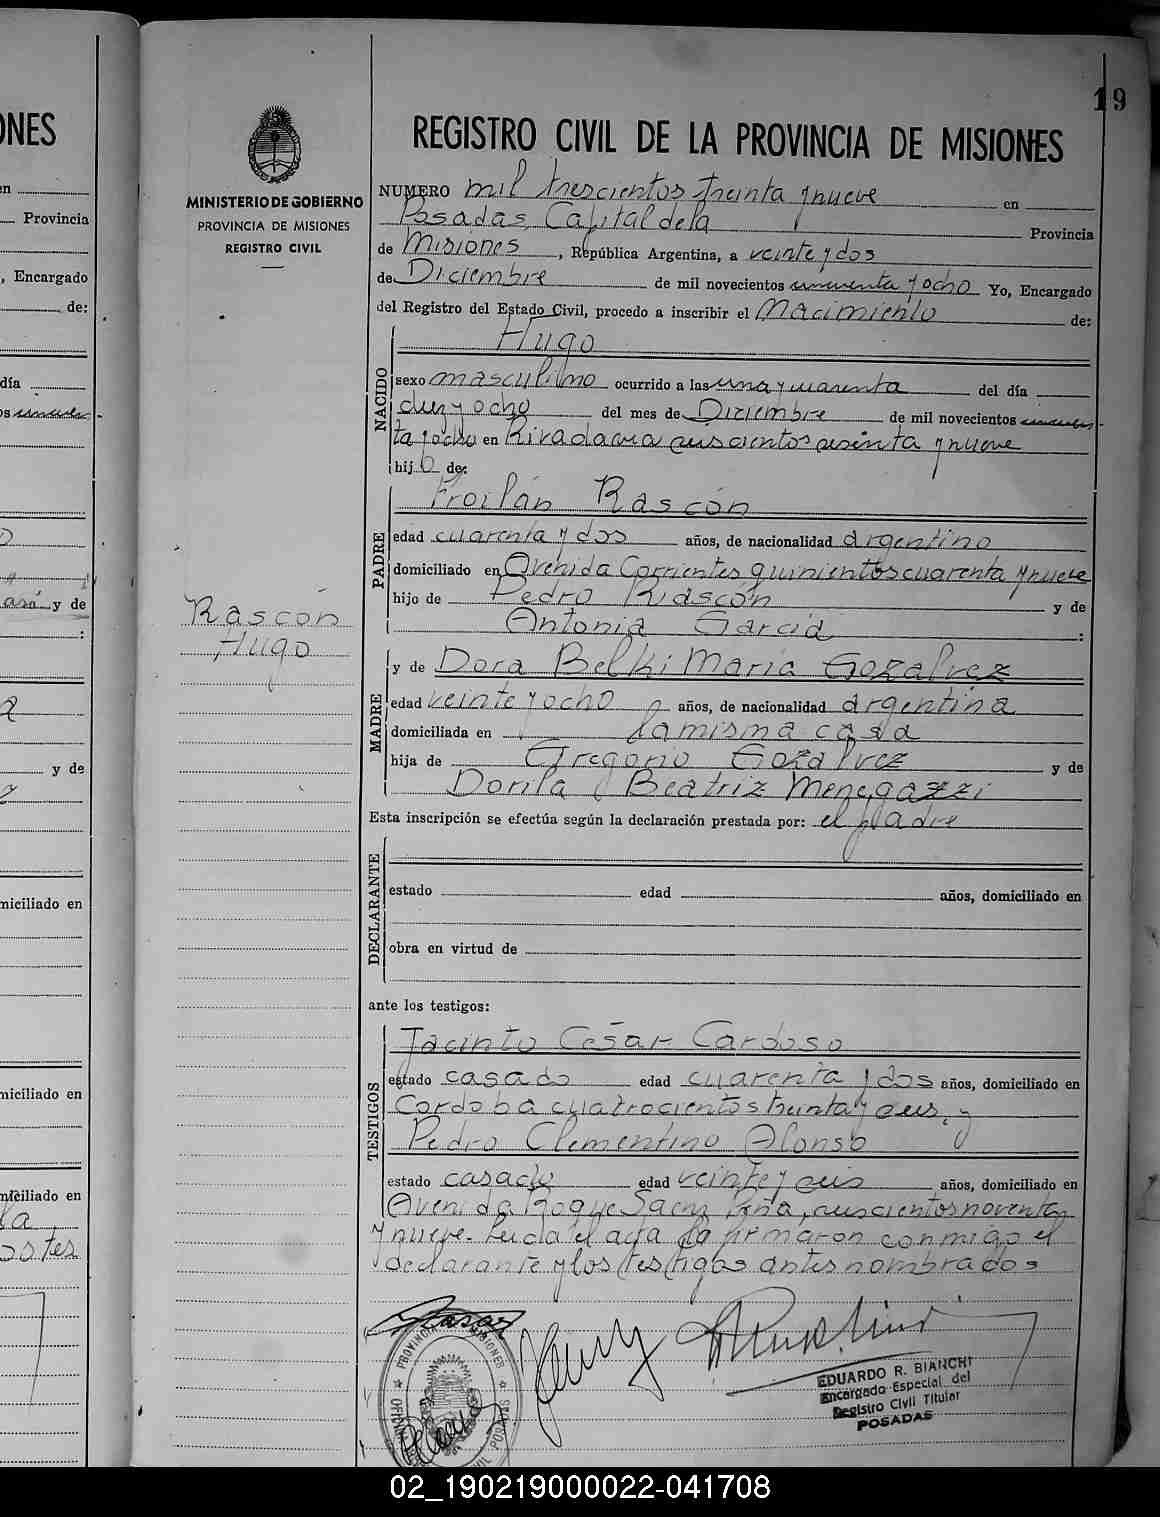 ONES
en
Provincia
, Encargado
de:
día
y de
y de
miciliado en
miciliado en
miciliado en
19
MINISTERIO DE GOBIERNO
PROVINCIA DE MISIONES
REGISTRO CIVIL
Rascón
Hugo
REGISTRO CIVIL DE LA PROVINCIA DE MISIONES
NUMERO mil trescientos treinta y nueve en
Posadas, Capital de la Provincia
de Misiones, República Argentina, a veinte y dos
de Diciembre de mil novecientos cincuenta y ocho Yo, Encargado
del Registro del Estado Civil, procedo a inscribir el Nacimiento de:
NACIDO
Hugo
sexo masculino ocurrido a las una y cuarenta del día
diez y ocho del mes de Diciembre de mil novecientos cincuen-
ta y ocho en Rivadavia seiscientos sesenta y nueve
hijo de:
PADRE
Froilán Rascón
edad cuarenta y dos años, de nacionalidad argentino
domiciliado en Avenida Corrientes quinientos cuarenta y nueve
hijo de Pedro Rascón y de
Antonia García :
MADRE
y de Dora Belki María Gozalvez
edad veinte y ocho años, de nacionalidad argentina
domiciliada en la misma casa
hija de Gregorio Gozalvez y de
Dorila Beatriz Menegazzi
Esta inscripción se efectúa según la declaración prestada por: el padre
DECLARANTE
estado edad años, domiciliado en
obra en virtud de
ante los testigos:
TESTIGOS
Jacinto César Cardoso
estado casado edad cuarenta y dos años, domiciliado en
Cordoba cuatrocientos treinta y seis, y
Pedro Clementino Alonso
estado casado edad veinte y seis años, domiciliado en
Avenida Roque Saenz Peña, seiscientos noventa
y nueve. Leida el acta la firmaron conmigo el
declarante y los testigos antes nombrados
PROVINCIA MISIONES
POSADAS
EDUARDO R. BIANCHI
Encargado Especial del
Registro Civil Titular
POSADAS
02_190219000022-041708